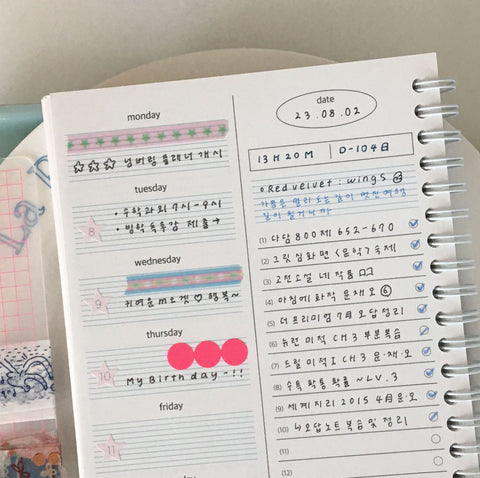 monday
☆☆☆ 넘버링 플래너 개시
tuesday
• 수학과외 7시-9시
8
• 방학특강 제출 →
wednesday
9
귀여운 m로켓 ♡ 행복~
thursday
10
My Birthday ~!!
friday
11
date
23.08.02
13H 20M
D-104日
• Red velvet : wings
가끔은 멀리 도는 길이 멋진 여행
길이 될 거니까
(1) 다담 800제 652-670
(2) 그릿 심화면 <문학> 숙제
(3) 고전소설 네 작품
(4) 아침에 화작 문제 오 ⑥
(5) 더프리미엄 7月 오답 정리
(6) 뉴런 미적 CH 3 부분복습
(7) 드릴 미적 I CH 3 문·채·오
(8) 수특 확통 확률 ~ LV. 3
(9) 세계지리 2015 4月 문·오
(10) 4오답노트 복습 및 정리
(11)
(12)